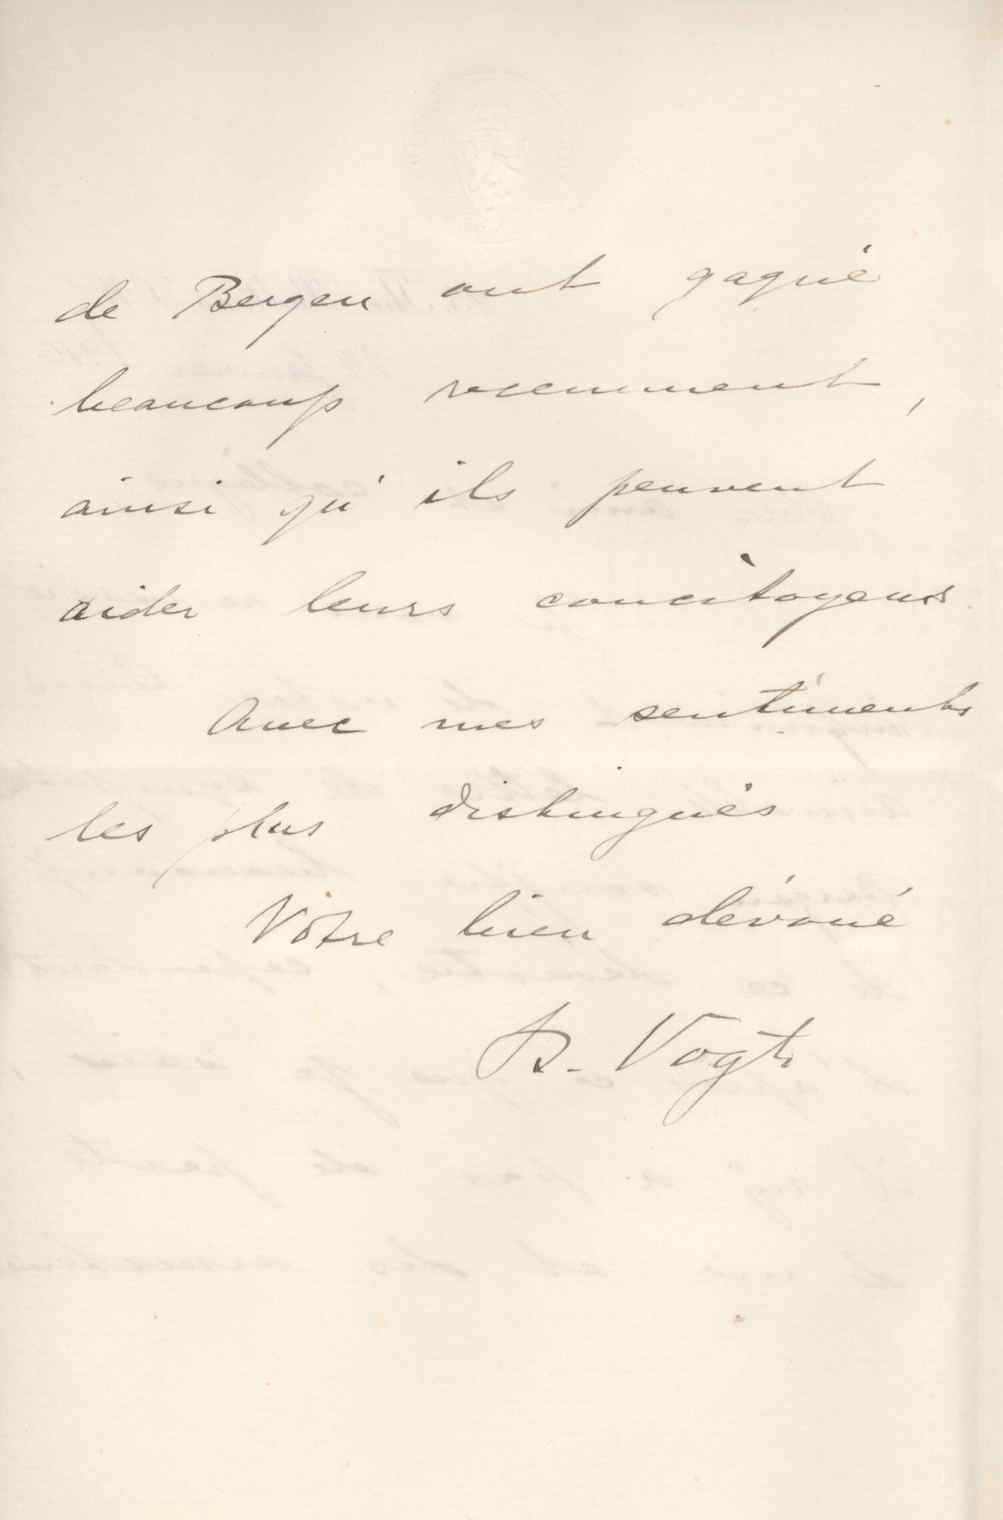 de Bergen ont gagné
beaucoup recemment,
ainsi qu'ils peuvent
aider leurs concitoyens
Avec mes sentiments
les plus distingués
Votre bien dévoué
B. Vogt